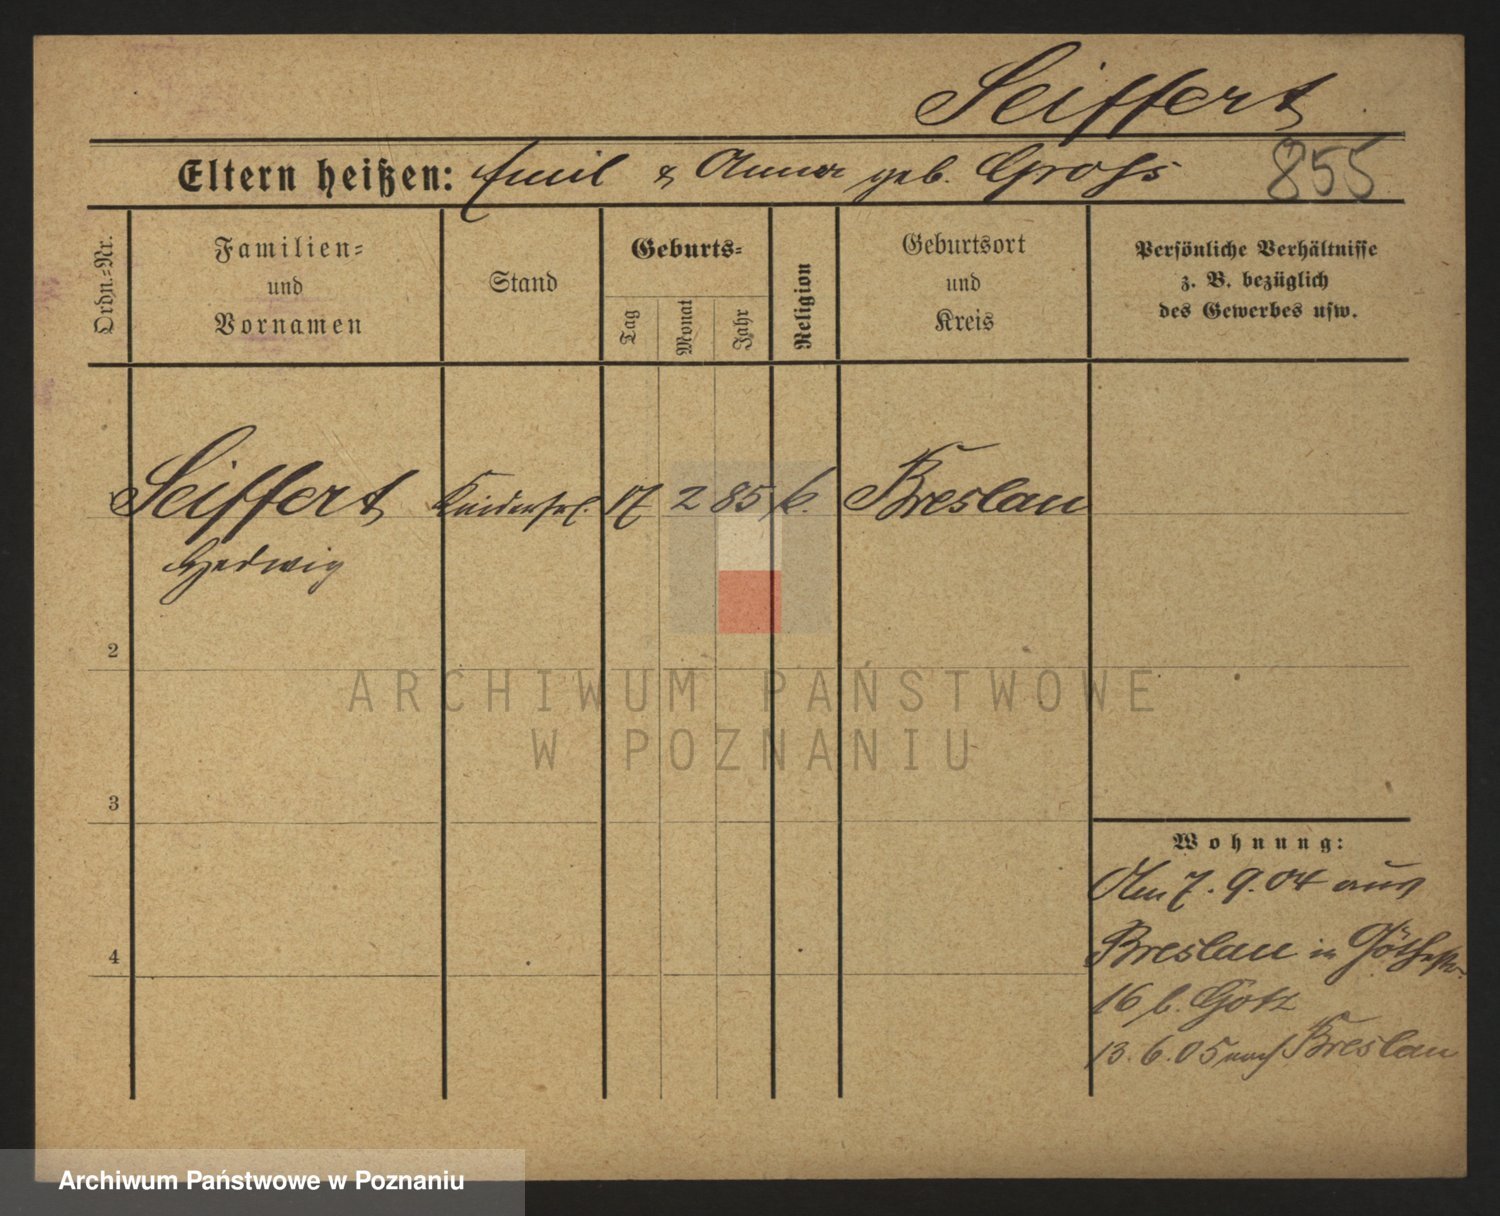 Seiffert
Eltern heißen: Emil & Anna geb. Gross 855
Ordn.-Nr.
Familien-
und
Vornamen
Stand
Geburts-
Tag
Monat
Jahr
Religion
Geburtsort
und
Kreis
Persönliche Verhältnisse
z. B. bezüglich
des Gewerbes usw.
Seiffert Kinderfrl. 17 2 85 k. Breslau
Hedwig
2
3
4
Wohnung:
Am 7. 9. 04 aus
Breslau in Göthestr.
16 b. Gotz
13. 6. 05 nach Breslau
ARCHIWUM PAŃSTWOWE
W POZNANIU
Archiwum Państwowe w Poznaniu